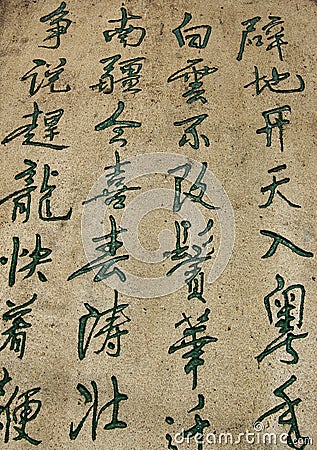 辟地开天入粤年
白雲不改鬓華
南疆今喜春涛壮
争说趕龍快着鞭